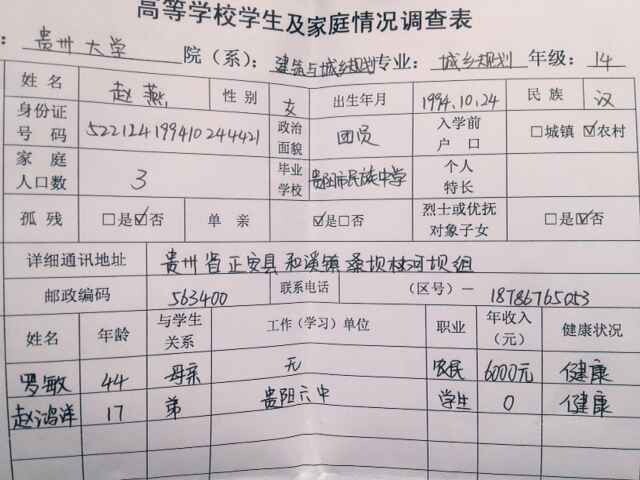 高等学校学生及家庭情况调查表
：贵州大学 院（系）：建筑与城乡规划 专业：城乡规划 年级：14
姓名 赵燕 性别 女 出生年月 1994.10.24 民族 汉
身份证号码 522124199410244421 政治面貌 团员 入学前户口 □城镇 ☑农村
家庭人口数 3 毕业学校 贵阳市民族中学 个人特长
孤残 □是☑否 单亲 ☑是□否 烈士或优抚对象子女 □是☑否
详细通讯地址 贵州省正安县和溪镇 坝村河坝组
邮政编码 563400 联系电话 （区号）－ 18786765053
姓名 年龄 与学生关系 工作（学习）单位 职业 年收入（元） 健康状况
罗敏 44 母亲 无 农民 6000元 健康
赵鸿洋 17 弟 贵阳六中 学生 0 健康